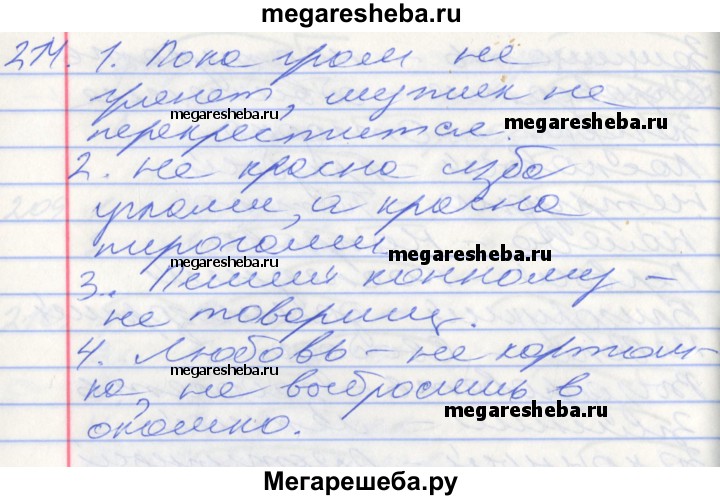 megaresheba.ru
214. 1. Пока гром не
грянет, мужик не
megaresheba.ru
перекрестится.
megaresheba.ru
2. Не красна изба
углами, а красна
пирогами
megaresheba.ru
3. Пеший конному –
не товарищ.
megaresheba.ru
4. Любовь – не картош-
ка, не выбросишь в
megaresheba.ru
окошко.
Мегарешеба.ру